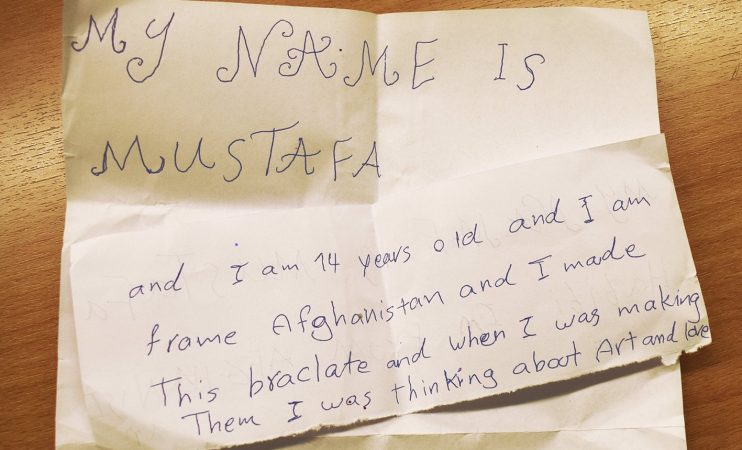 MY NAME IS
MUSTAFA
and I am 14 years old and I am
frome Afghanistan and I made
This braclate and when I was making
Them I was thinking about Art and love